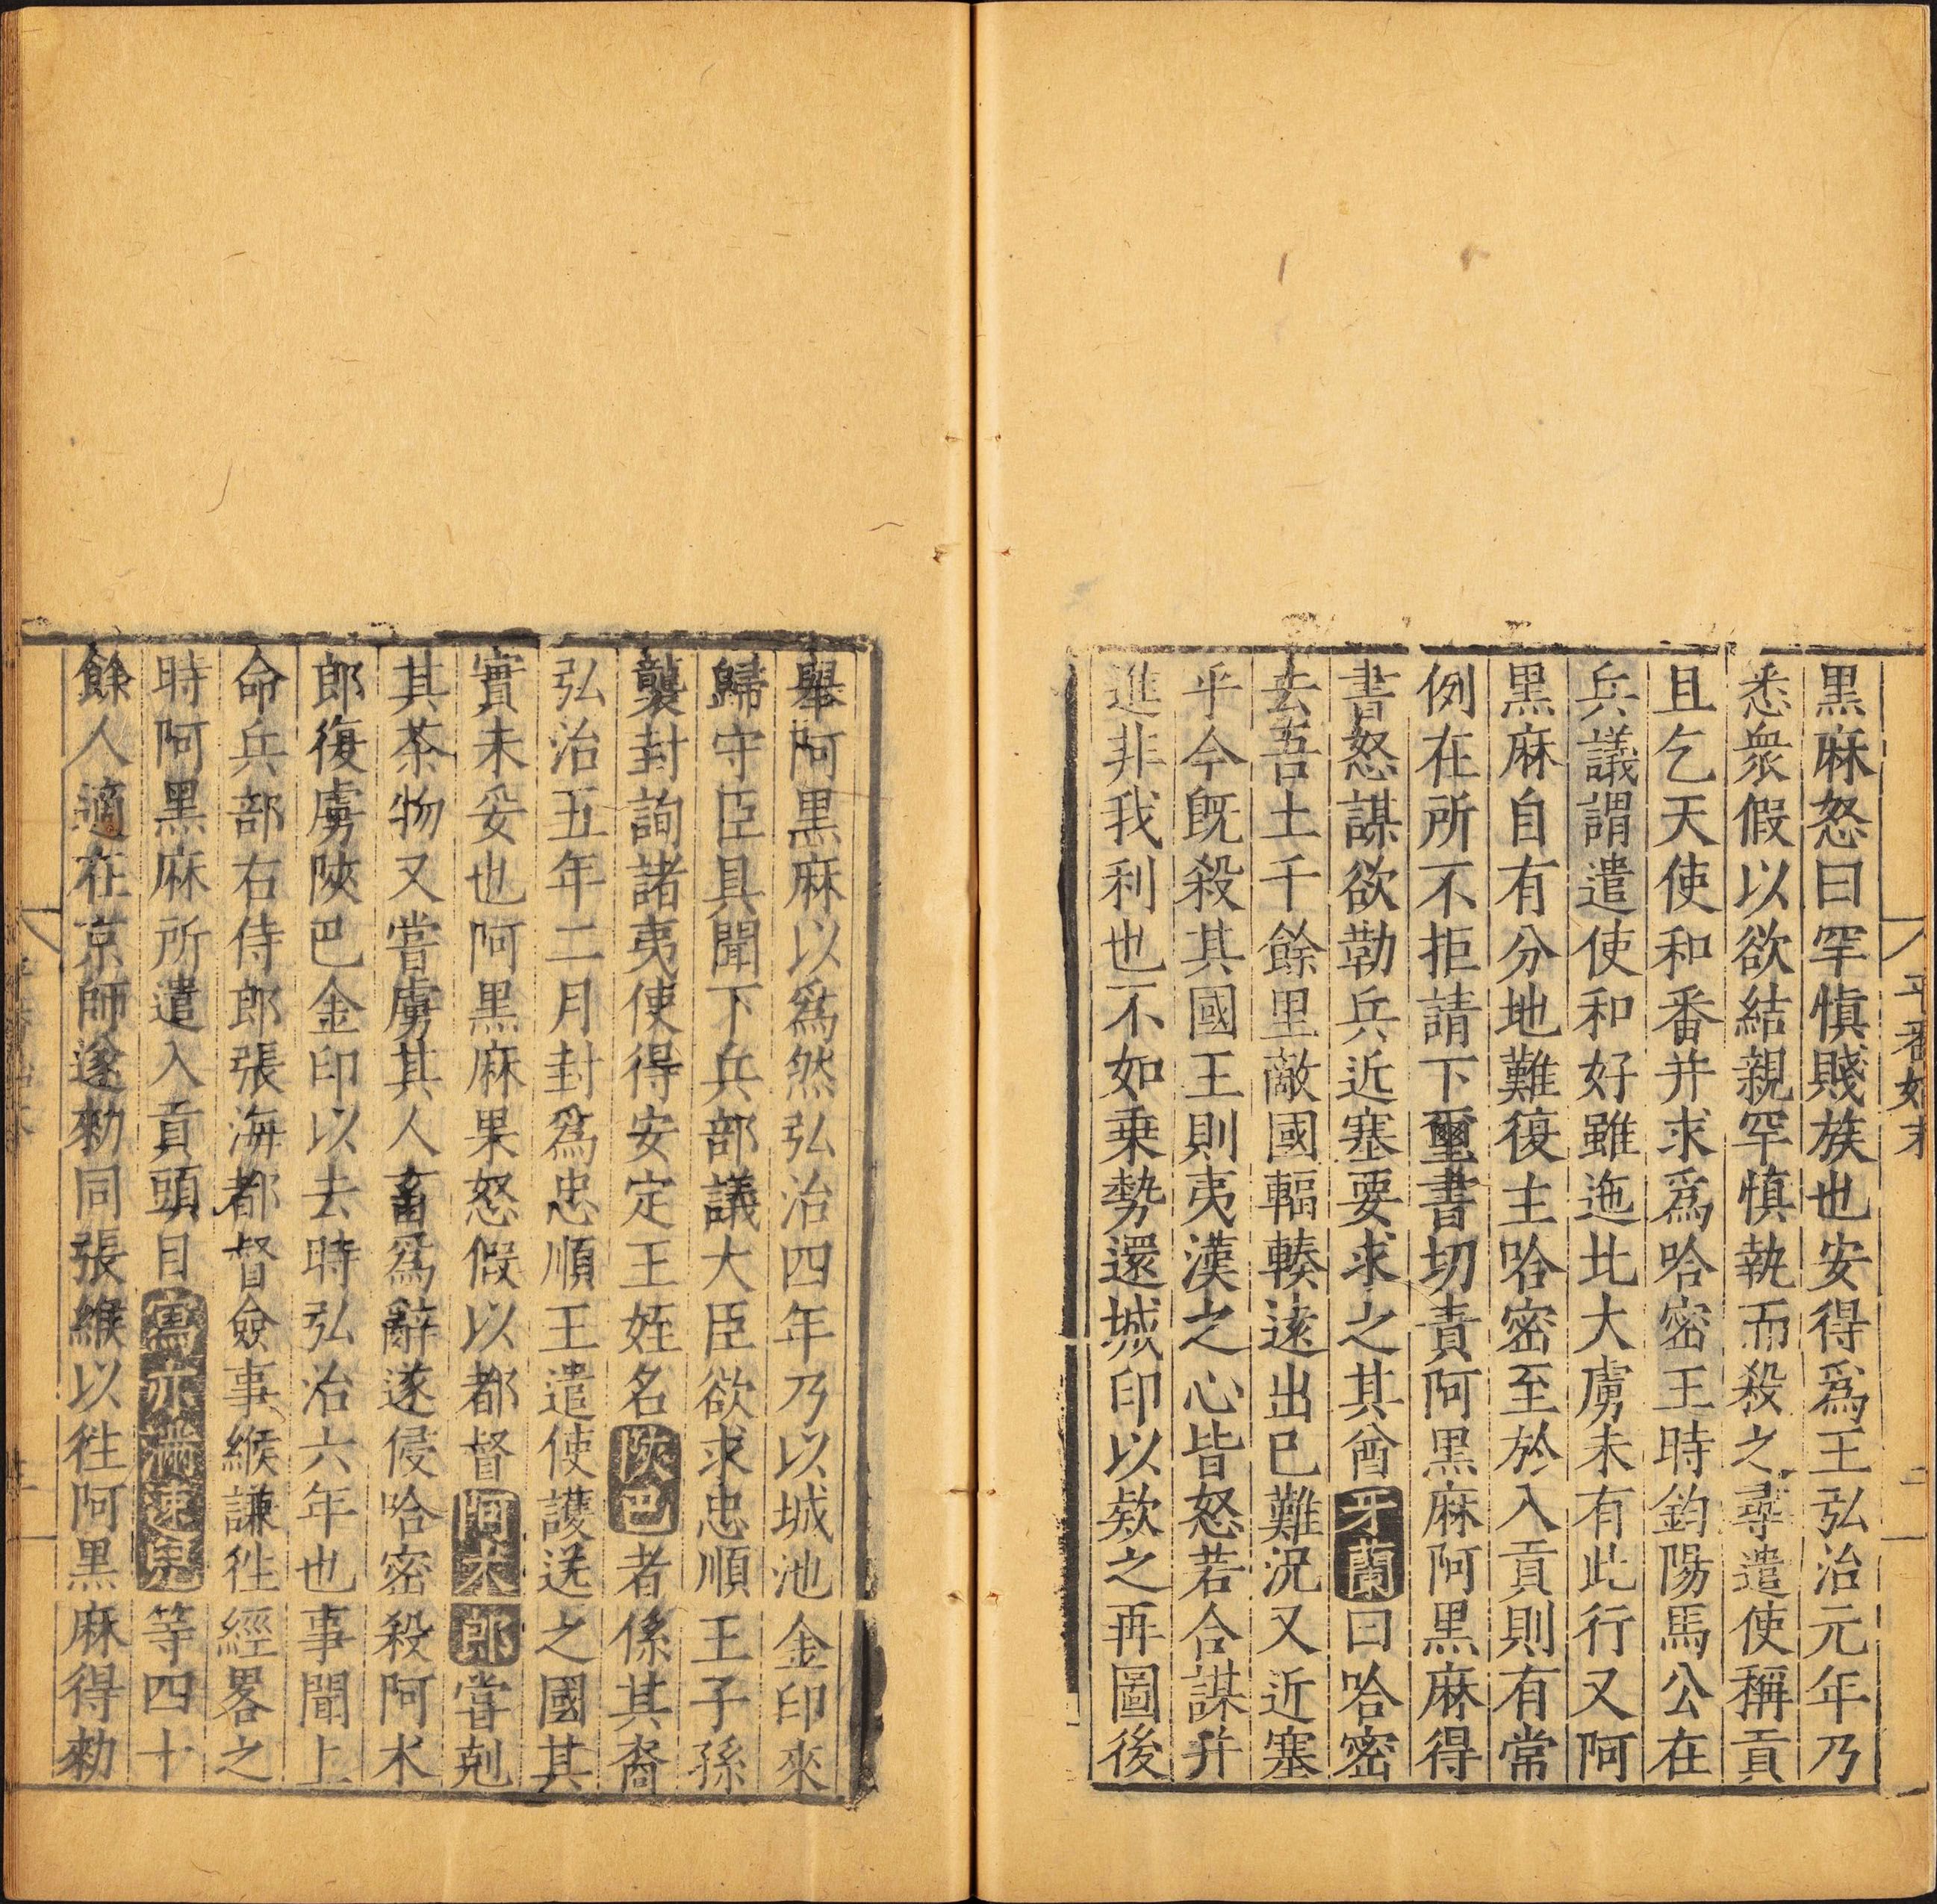 黑麻怒曰罕慎賤族也安得爲王弘治元年乃
悉衆假以欲結親罕慎執而殺之尋遣使稱貢
且乞天使和番并求爲哈密王時鈞陽馬公在
兵議謂遣使和好雖迤北大虜未有此行又阿
黑麻自有分地難復主哈密至於入貢則有常
例在所不拒請下璽書切責阿黑麻阿黑麻得
書怒謀欲勒兵近塞要求之其酋牙蘭曰哈密
去吾土千餘里敵國輻輳遠出已難況又近塞
乎今旣殺其國王則夷漢之心皆怒若合謀并
進非我利也不如乗勢還城印以欵之再圖後
舉阿黑麻以爲然弘治四年乃以城池金印來
歸守臣具聞下兵部議大臣欲求忠順王子孫
襲封詢諸夷使得安定王姪名陜巴者係其裔
弘治五年二月封爲忠順王遣使護送之國其
實未妥也阿黑麻果怒假以都督阿木郎嘗剋
其茶物又嘗虜其人畜爲辭遂侵哈密殺阿木
郎復虜陜巴金印以去時弘治六年也事聞上
命兵部右侍郎張海都督僉事緱謙徃經畧之
時阿黑麻所遣入貢頭目寫亦滿速兒等四十
餘人適在京師遂勑同張緱以徃阿黑麻得勑
平番始末
二